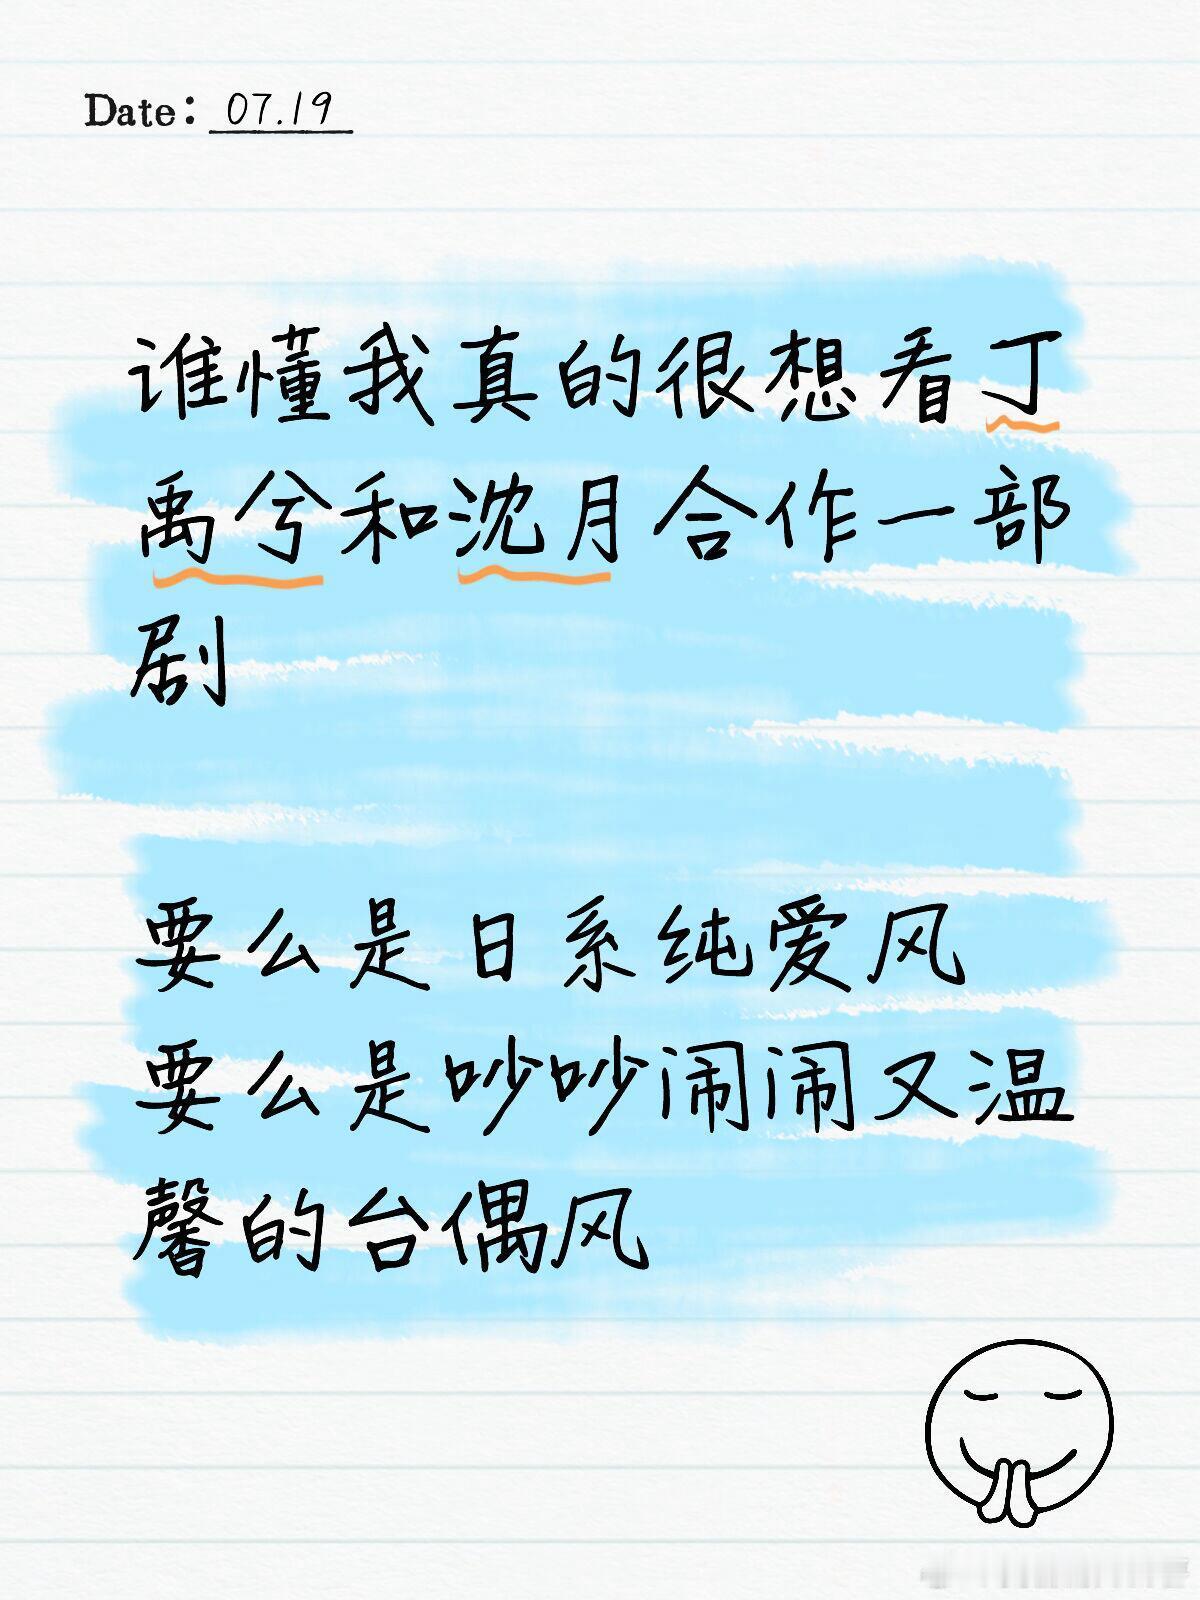 Date: 07.19
谁懂我真的很想看丁
禹兮和沈月合作一部
剧
要么是日系纯爱风
要么是吵吵闹闹又温
馨的台偶风